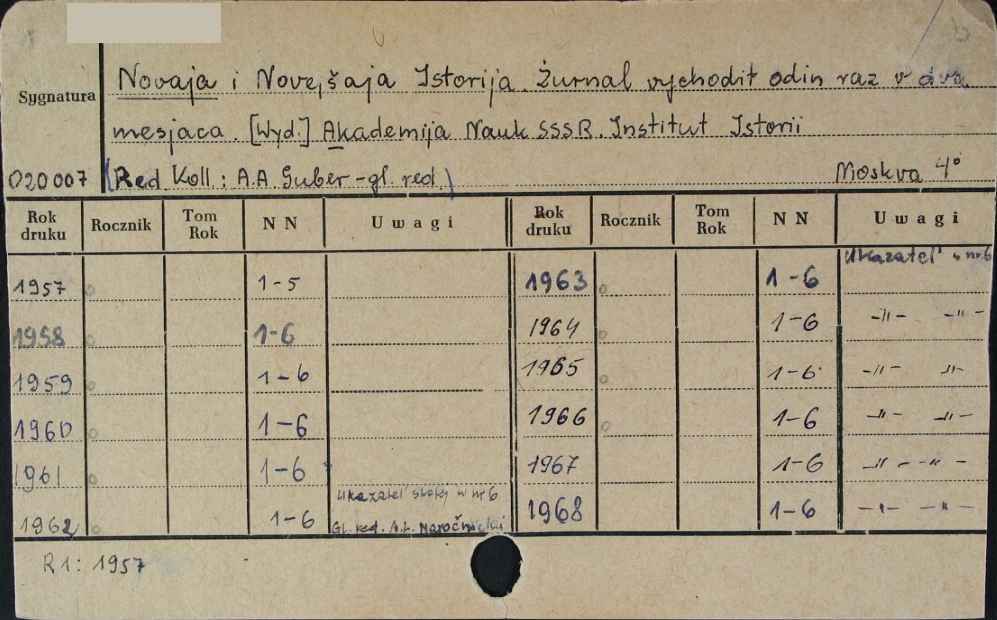 Novaja i Novejšaja Istorija. Žurnal vychodit odin raz v dva
Sygnatura
mesjaca. [Wyd.] Akademija Nauk SSSR. Institut Istorii
020007 (Red Koll: A.A. Guber - gl. red.) Moskva 4°
Rok druku Rocznik Tom Rok NN Uwagi Rok druku Rocznik Tom Rok NN Uwagi
1957 1-5 1963 1-6 Ukazatel' w nr 6
1958 1-6 1964 1-6 -"- -"-
1959 1-6 1965 1-6 -"- -"-
1960 1-6 1966 1-6 -"- -"-
1961 1-6 1967 1-6 -"- -"-
1962 1-6 Ukazatel' w nr 6 Gl. red. A.L. Naročnickij 1968 1-6 -"- -"-
R1: 1957